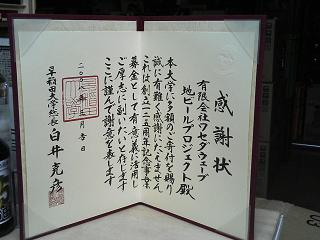 感謝状
有限会社ワセダウェーブ
地ビールプロジェクト殿
本大学に多額のご寄付を賜り
誠に有難く感謝にたえません
これは創立一二五周年記念事業
募金として有意義に活用し
ご厚志に副いたいと存じます
ここに謹んで謝意を表します
二〇〇八年 月 吉日
早稲田大学総長 白井克彦